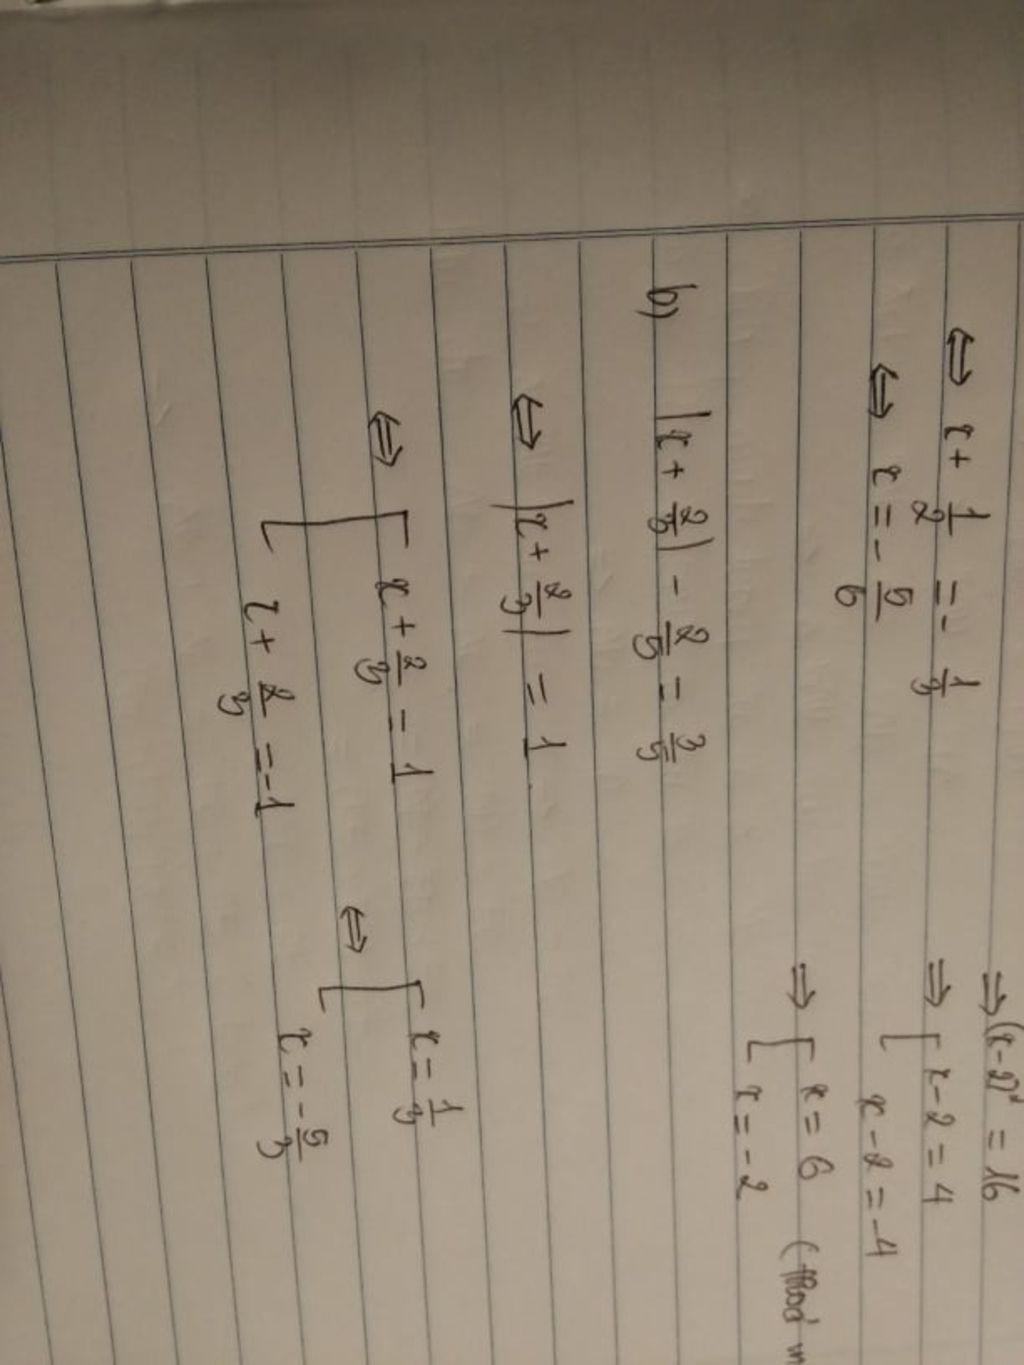 ⇔ x + 1/2 = - 1/3
⇔ x = - 5/6
b) |x + 2/3| - 2/5 = 3/5
⇔ |x + 2/3| = 1
⇔ [ x + 2/3 = 1
[ x + 2/3 = -1
⇔ [ x = 1/3
[ x = - 5/3
⇒ (x-2)² = 16
⇒ [ x - 2 = 4
[ x - 2 = -4
⇒ [ x = 6 (thoả
[ x = -2